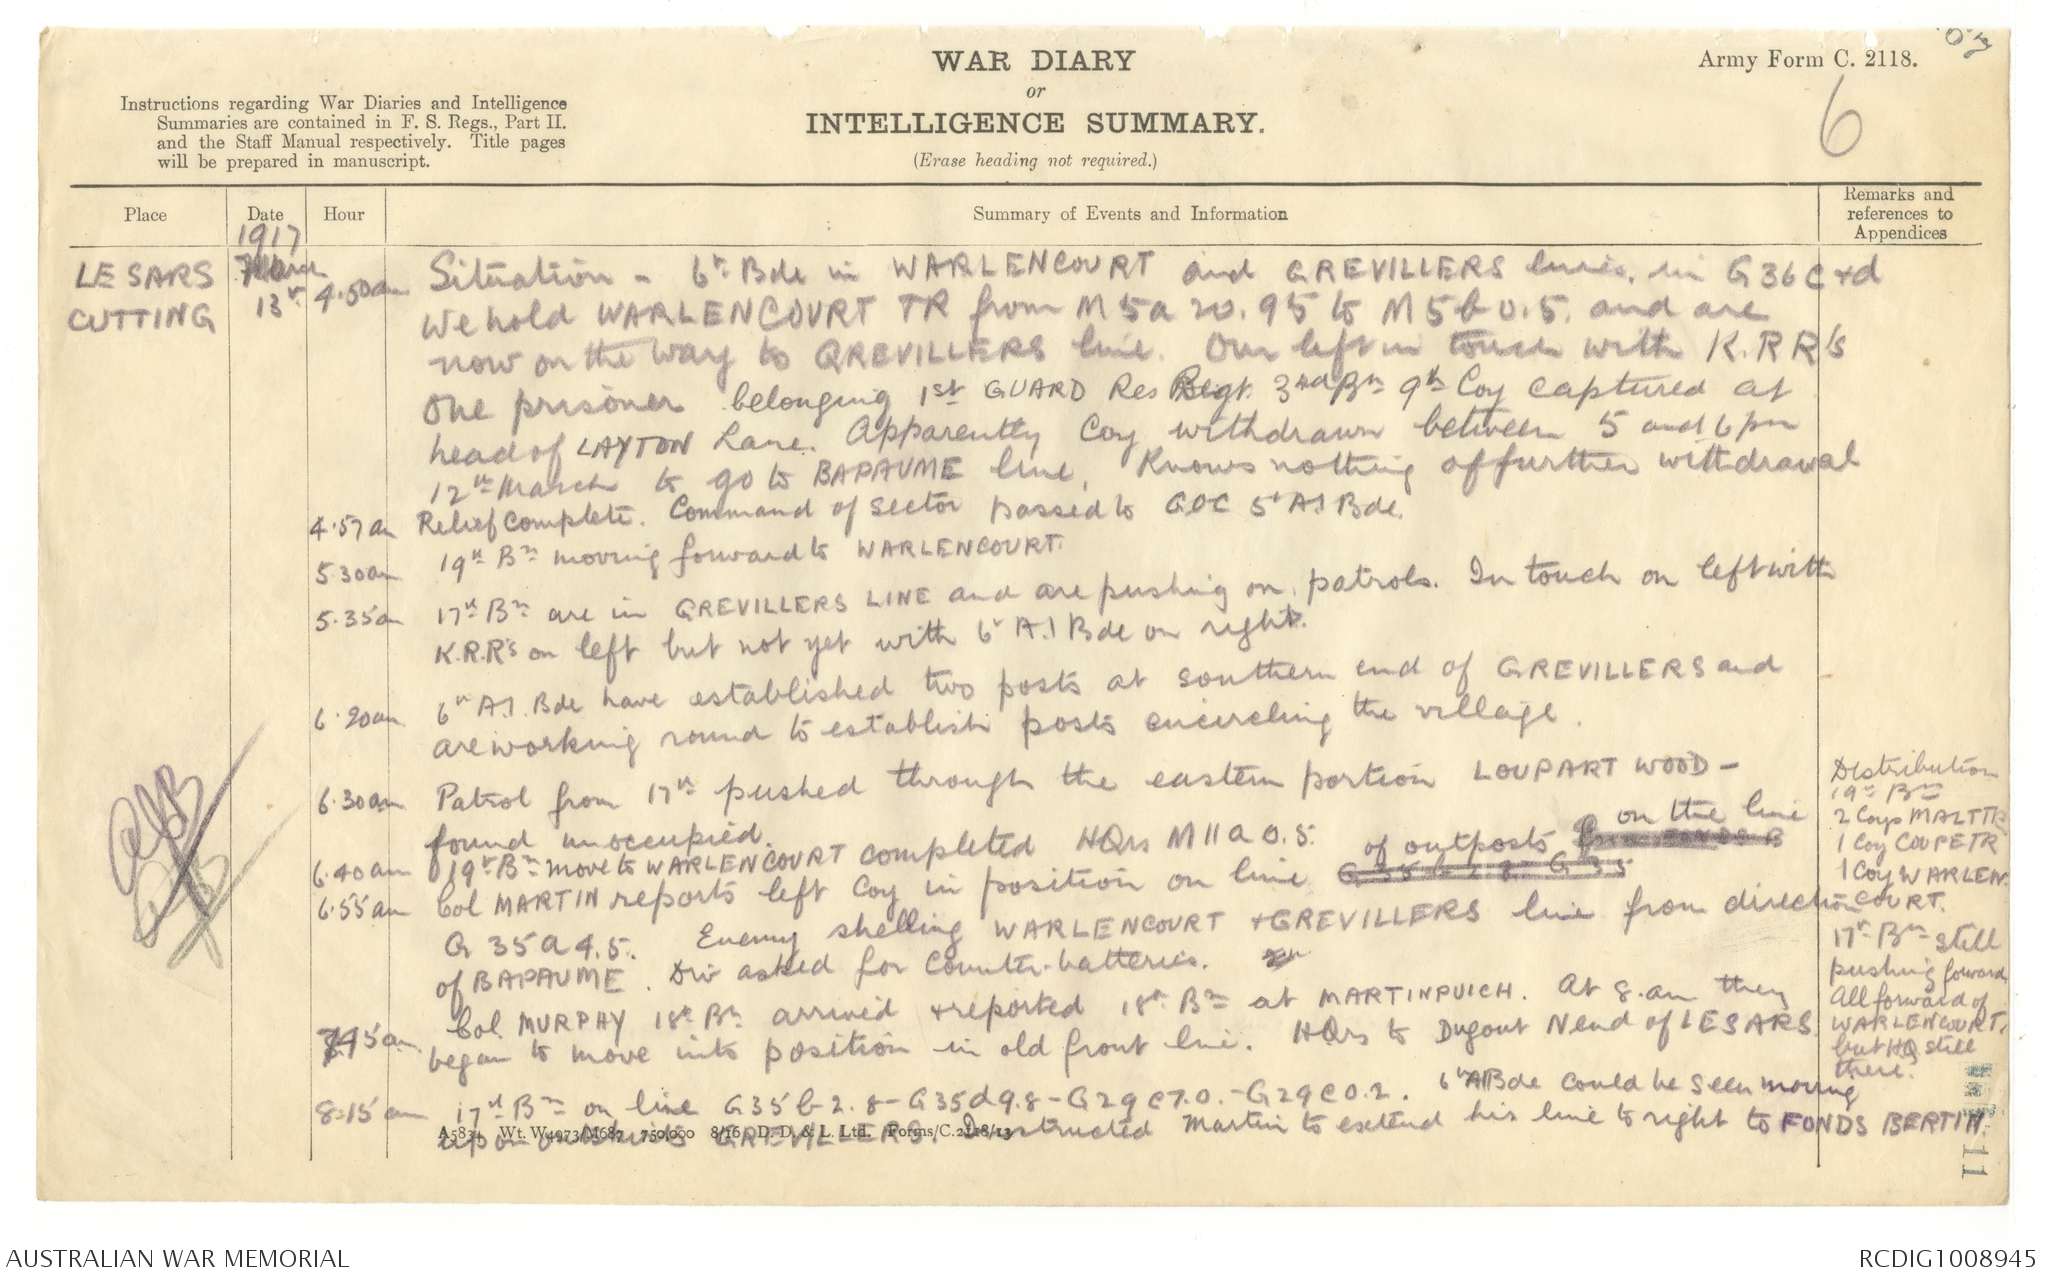 WAR DIARY
or
INTELLIGENCE SUMMARY.
(Erase heading not required.)
Army Form C. 2118.
6
Instructions regarding War Diaries and Intelligence
Summaries are contained in F. S. Regs., Part II.
and the Staff Manual respectively. Title pages
will be prepared in manuscript.
Place
Date
Hour
Summary of Events and Information
Remarks and
references to
Appendices
1917
LE SARS
CUTTING
March
13th
4.50am Situation - 6th Bde in WARLENCOURT and GREVILLERS lines, in G36c+d
We hold WARLENCOURT TR from M5a 20.95 to M5b 0.5. and are
now on the way to GREVILLERS line. Our left in touch with K.R.R's
One prisoner belonging 1st GUARD Res Regt. 3rd Bn 9th Coy captured at
head of LAYTON Lane. Apparently Coy withdrawn between 5 and 6 pm
12th March to go to BAPAUME line. Knows nothing of further withdrawal
4.57am Relief complete. Command of sector passed to GOC 5th A.I Bde.
5.30am 19th Bn moving forward to WARLENCOURT.
5.35am 17th Bn are in GREVILLERS LINE and are pushing on patrols. In touch on left with
K.R.R's on left but not yet with 6th A.I Bde on right.
6.20am 6th A.I. Bde have established two posts at southern end of GREVILLERS and
are working round to establish posts encircling the village.
6.30am Patrol from 17th pushed through the eastern portion LOUPART WOOD -
found unoccupied.
6.40am 19th Bn move to WARLENCOURT completed HQrs M11a 0.5.
6.55am Col MARTIN reports left Coy in position on line G 35 b 2.8 - G 35 of outposts on the line
G 35a 4.5. Enemy shelling WARLENCOURT + GREVILLERS line from direction
of BAPAUME. Div asked for counter-batteries.
7.45am Col MURPHY 18th Bn arrived + reported 18th Bn at MARTINPUICH. At 8.am they
began to move into position in old front line. HQrs to Dugout N end of LE SARS
8.15am 17th Bn on line G35b 2.8 - G35d 9.8 - G29c 7.0. - G29c 0.2. 6th AI Bde could be seen moving
up on outskirts GREVILLERS. Instructed Martin to extend his line to right to FONDS BERTIN.
Distribution
19th Bn
2 Coys MALT TR
1 Coy COUPE TR
1 Coy WARLEN-
COURT.
17th Bn still
pushing forward
All forward of
WARLENCOURT.
but HQ still
there.
A5834 Wt. W4973/M687 750,000 8/16 D. D. & L. Ltd. Forms/C.2118/13
AUSTRALIAN WAR MEMORIAL
RCDIG1008945